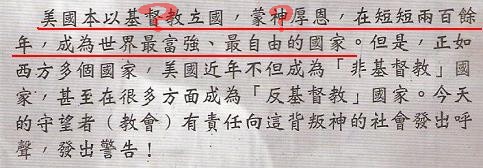 美國本以基督教立國，蒙神厚恩，在短短兩百餘
年，成為世界最富強、最自由的國家。但是，正如
西方多個國家，美國近年不但成為「非基督教」國
家，甚至在很多方面成為「反基督教」國家。今天
的守望者（教會）有責任向這背叛神的社會發出呼
聲，發出警告！